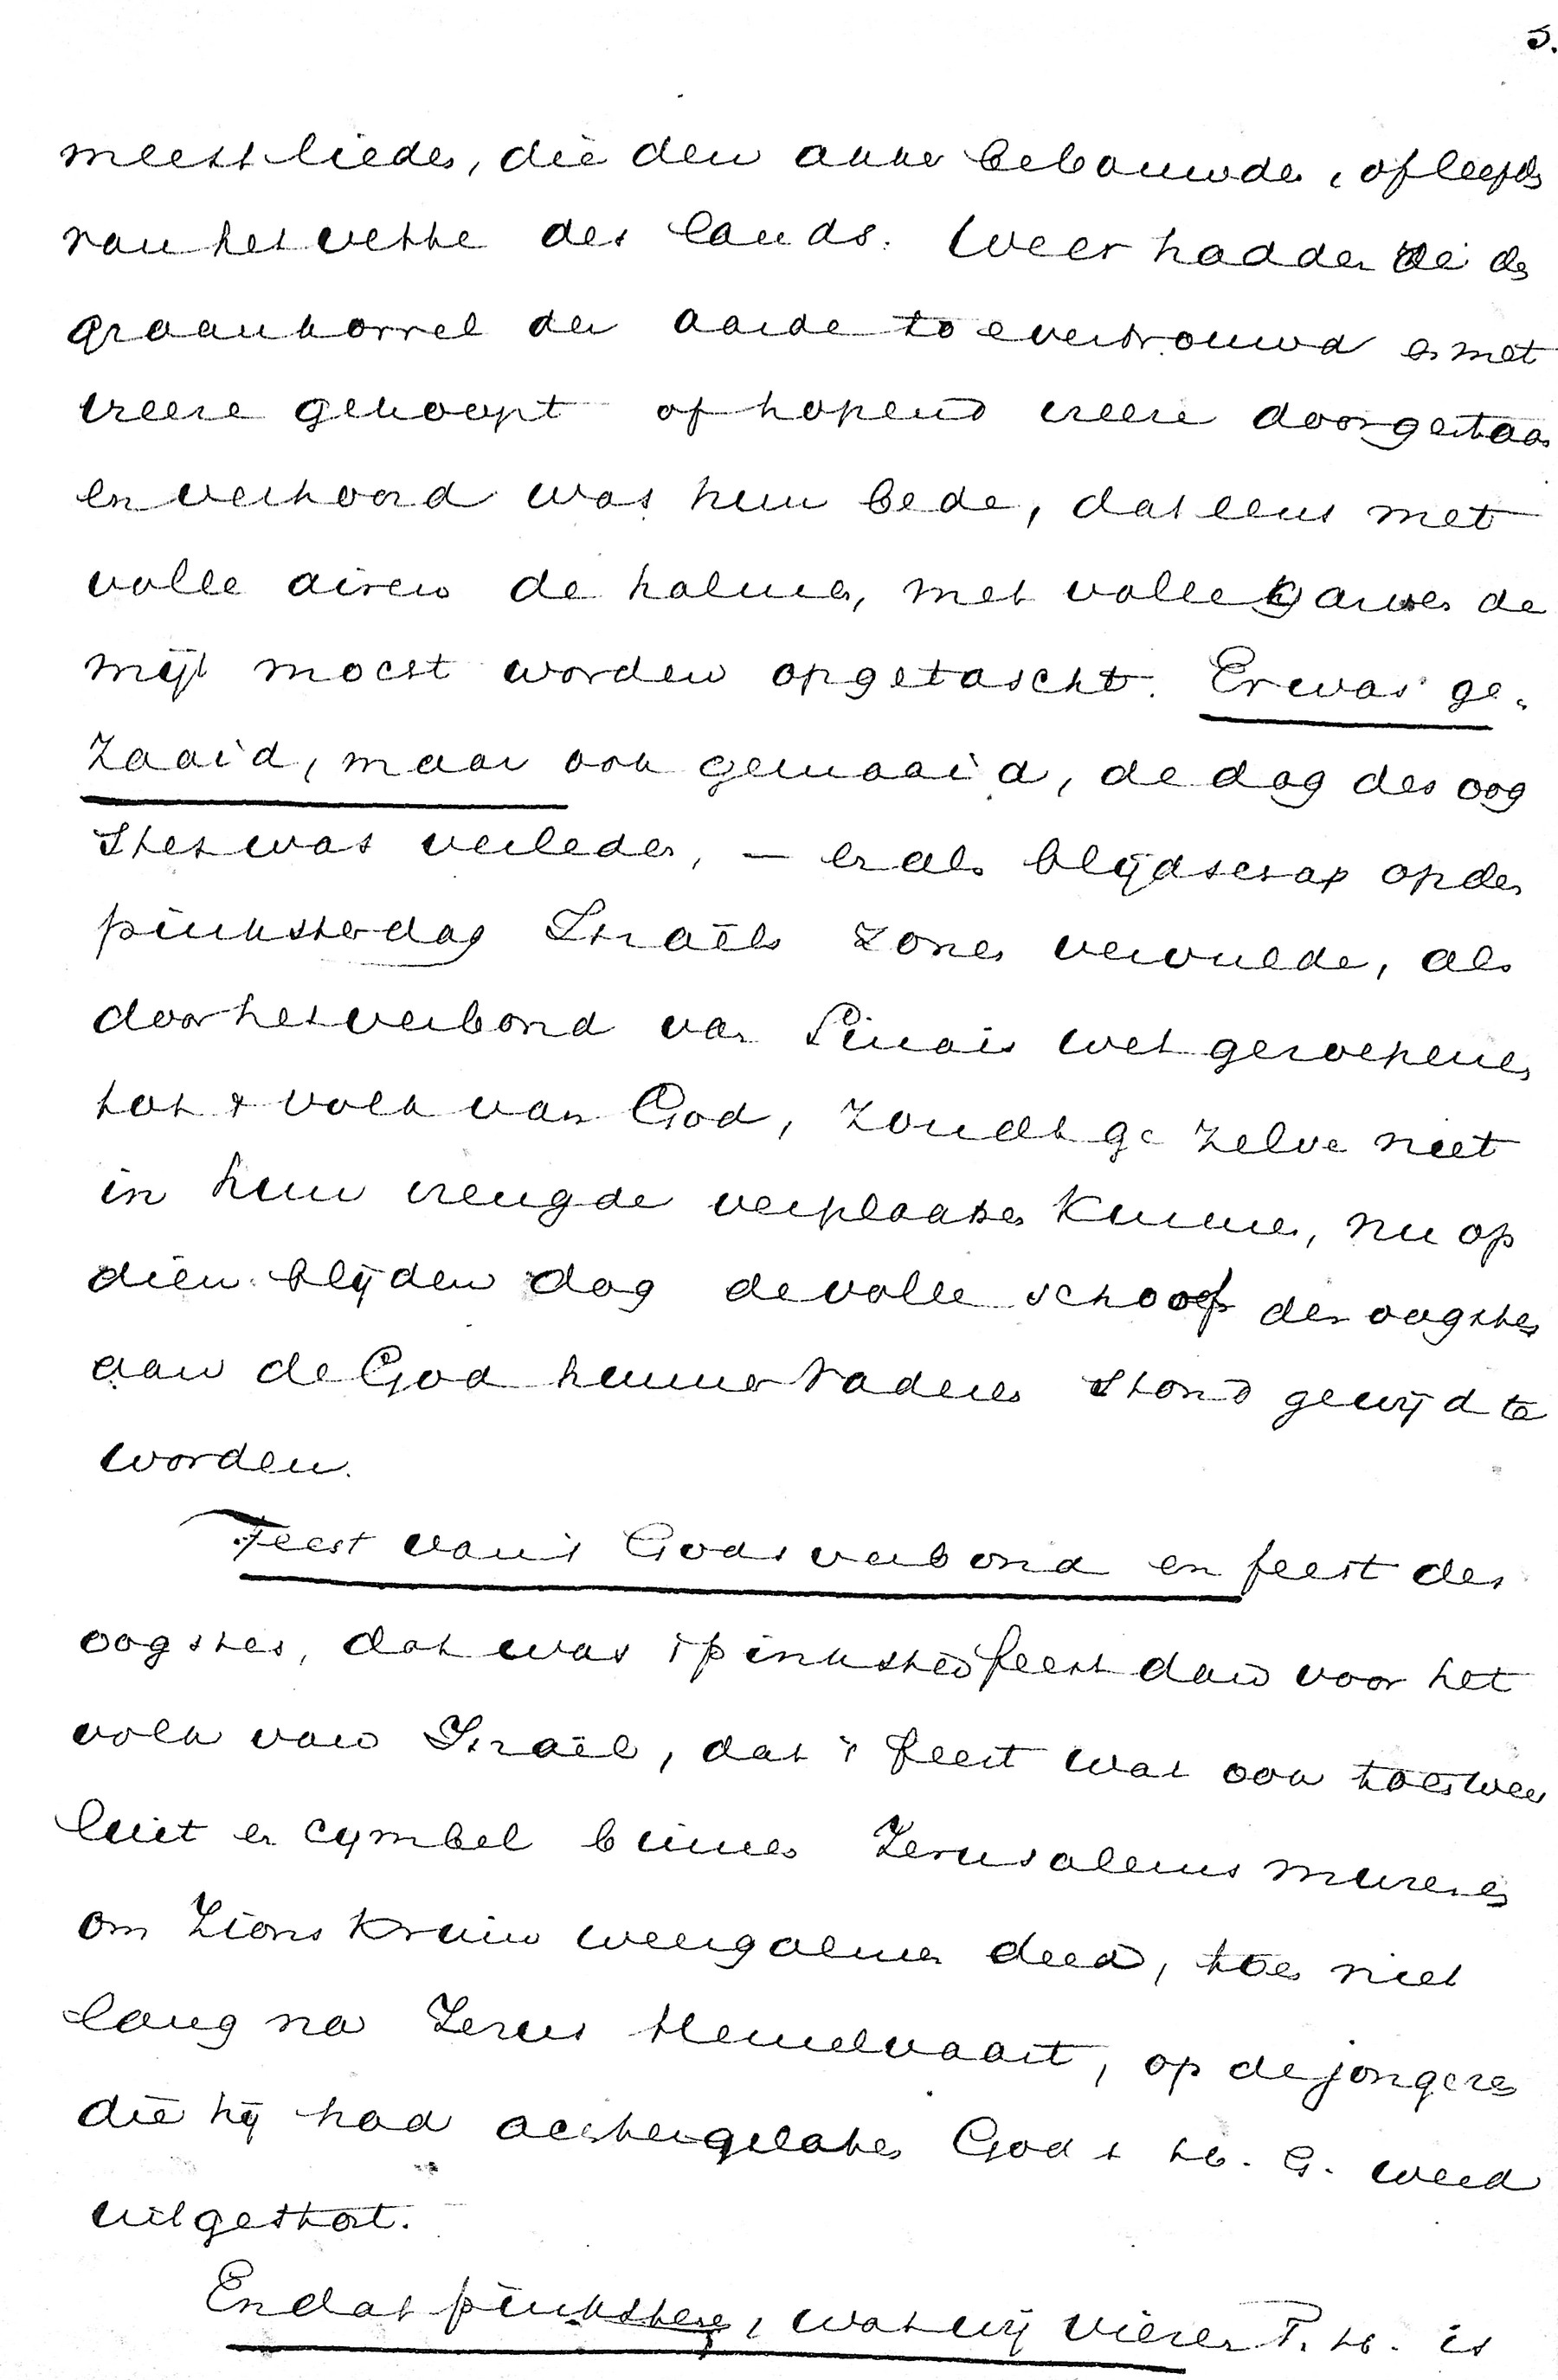 5.
meest lieden, die den akker bebouwden, of leefden
van het vette des lands. Weer hadden ze de
graankorrel der aarde toevertrouwd en met
vreeze gehoopt of hopend vreeze doorgestaan
en verhoord was hun bede, dat eens met
volle airen de halmen, met volle garven de
mijt mocht worden opgetascht. Er was ge-
zaaid, maar ook gemaaid, de dag des oog
stes was verleden, — en als blijdschap op den
pinksterdag Israëls zonen vervulde, als
door het verbond van Sinais wet geroepenen
tot 't volk van God, zoudt ge zelve niet
in hun vreugde verplaatsen kunnen, nu op
dien blijden dag de volle schoof des oogstes
aan de God hunner Vaderen stond gewijd te
worden.
Feest van 't Godsverbond en feest des
oogstes, dat was 't pinksterfeest dan voor het
volk van Israël, dat 't feest wat ook toen weer
luit en cymbel binnen Jerusalems mureren
om Zions kruin weergalmen deed, toen niet
lang na Jezus Hemelvaart, op de jongeren
die hij had achtergelaten God s H. G. werd
uitgestort.
En dat pinksteren, wat wij vieren T. H. is